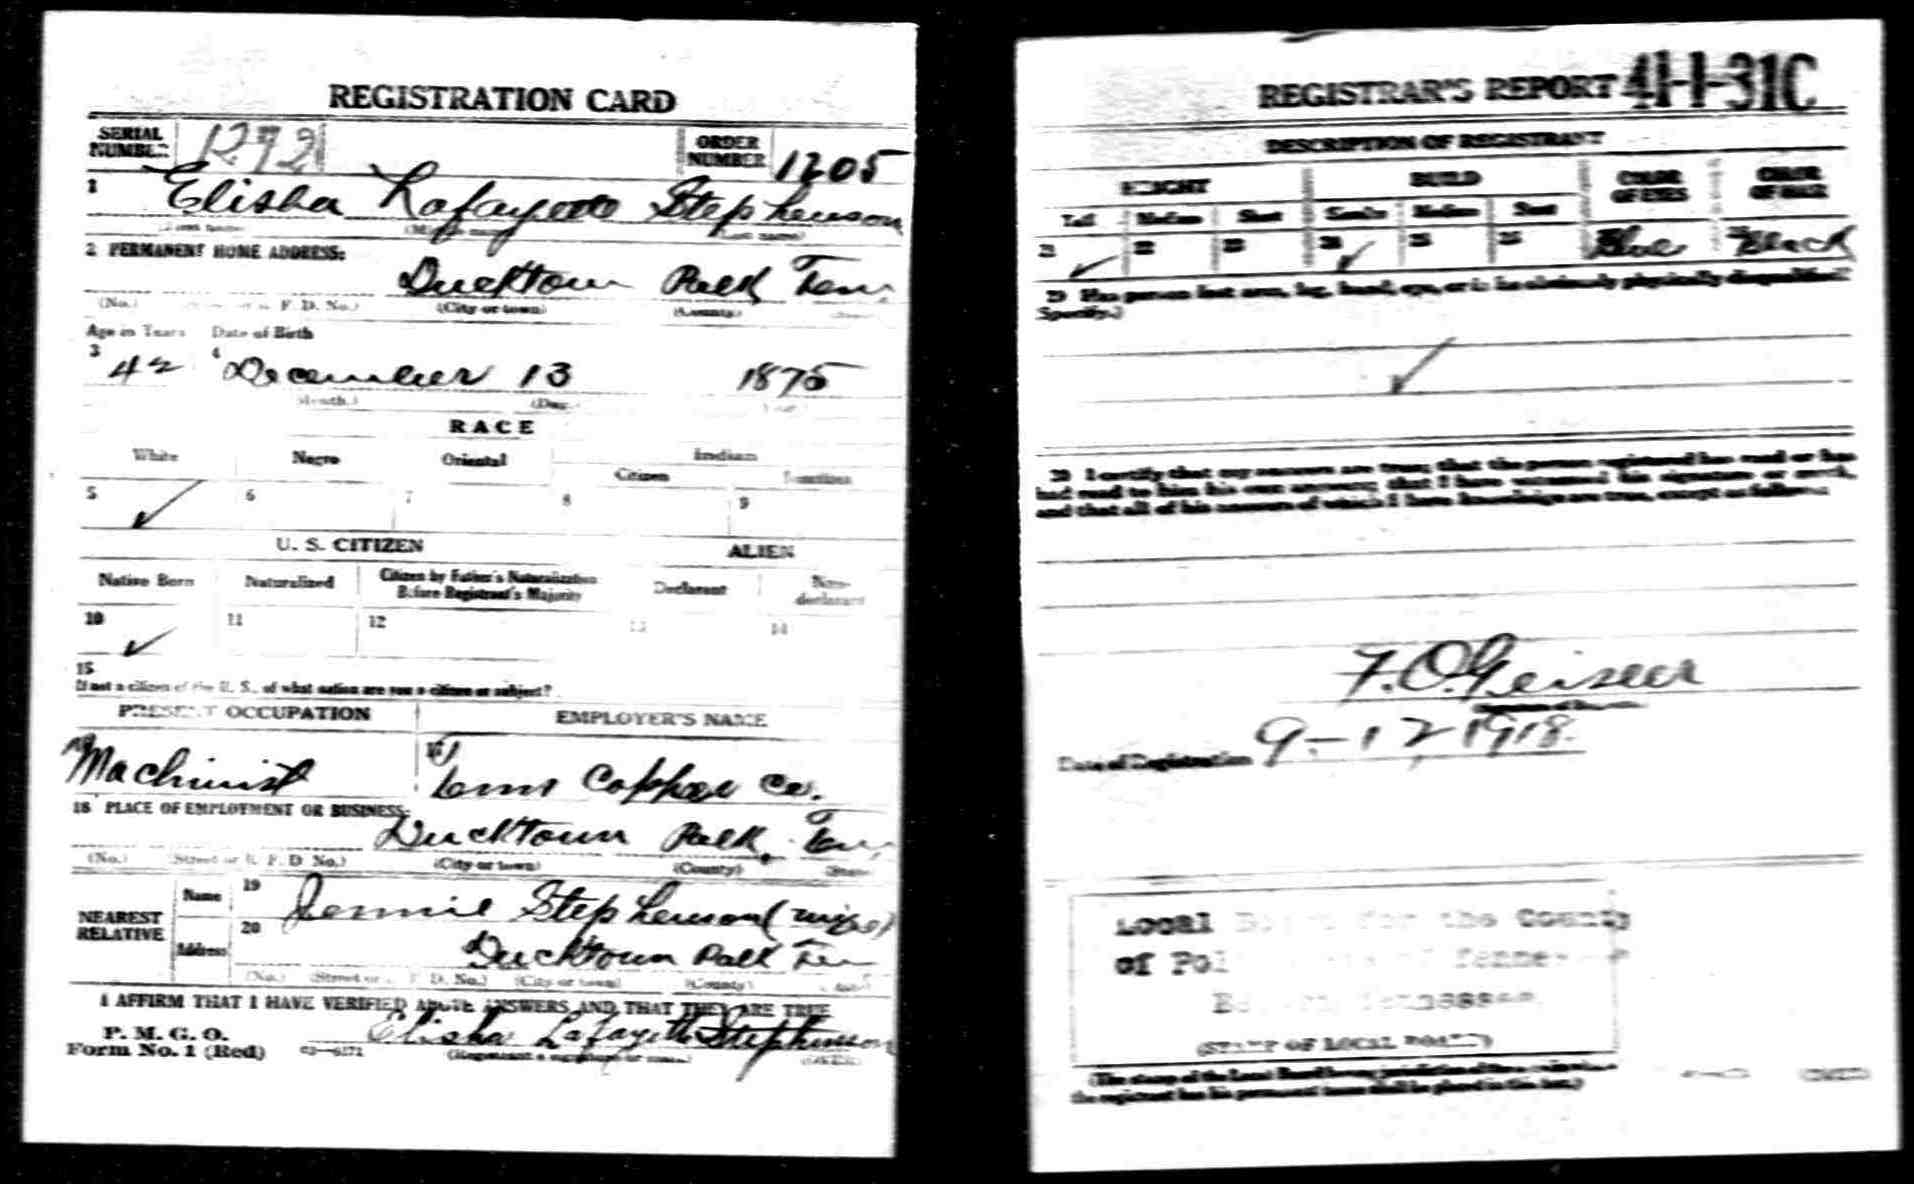 REGISTRATION CARD
SERIAL NUMBER 1272 ORDER NUMBER 1205
1 Elisha Lafayette Stephenson
(First name) (Middle name) (Last name)
2 PERMANENT HOME ADDRESS:
Ducktown Polk Tenn,
(No.) F. D. No.) (City or town) (County)
Age in Years Date of Birth
3 42 4 December 13 1875
(Month.) (Day.) (Year.)
RACE
White Negro Oriental Indian
Citizen
5 ✓ 6 7 8 9
U. S. CITIZEN ALIEN
Native Born Naturalized Citizen by Father's Naturalization Before Registrant's Majority Declarant Non-declarant
10 ✓ 11 12 13 14
15
If not a citizen of the U. S., of what nation are you a citizen or subject?
PRESENT OCCUPATION EMPLOYER'S NAME
Machinist 17 Tenn Copper Co.
18 PLACE OF EMPLOYMENT OR BUSINESS:
Ducktown Polk. Tenn,
(No.) (Street or R. F. D No.) (City or town) (County) (State)
NEAREST RELATIVE Name 19 Jennie Stephenson (wife)
Address 20 Ducktown Polk Ten
(No.) (Street or R. F. D. No.) (City or town) (County) (State)
I AFFIRM THAT I HAVE VERIFIED ABOVE ANSWERS AND THAT THEY ARE TRUE
P. M. G. O.
Form No. 1 (Red) 03—6171 Elisha Lafayette Stephenson
(Registrant's signature or mark) (OVER)
REGISTRAR'S REPORT 41-1-31C
DESCRIPTION OF REGISTRANT
HEIGHT BUILD COLOR OF EYES COLOR OF HAIR
Tall Medium Short Slender Medium Stout
21 ✓ 22 23 24 ✓ 25 26 Blue Black
29 Has person lost arm, leg, hand, eye, or is he obviously physically disqualified?
(Specify.)
✓
30 I certify that my answers are true; that the person registered has read or has
had read to him his own answers; that I have witnessed his signature or mark,
and that all of his answers of which I have knowledge are true, except as follows:
F. O. Geisler
Date of Registration 9-12, 1918.
Local Board for the County
of Polk State of Tennessee
Tennessee
(STAMP OF LOCAL BOARD)
(The stamp of the Local Board having jurisdiction of the area in which
the registrant has his permanent home shall be placed in this box.)
(OVER)